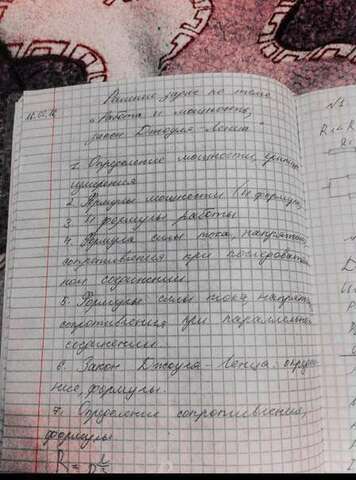 Решение задач по теме
"Работа и мощность,
закон Джоуля-Ленца"
1. Определение мощности, единицы
измерения
2. Формулы мощности
3. формулы работы
4. Формула силы тока, напряж
сопротивления при последовате
ном соединении.
5. Формулы силы тока, напряж
сопротивления при параллельн
соединении.
6. Закон Джоуля-Ленца: опреде
ние, формулы.
7. Определение сопротивления,
формулы
R =
№1